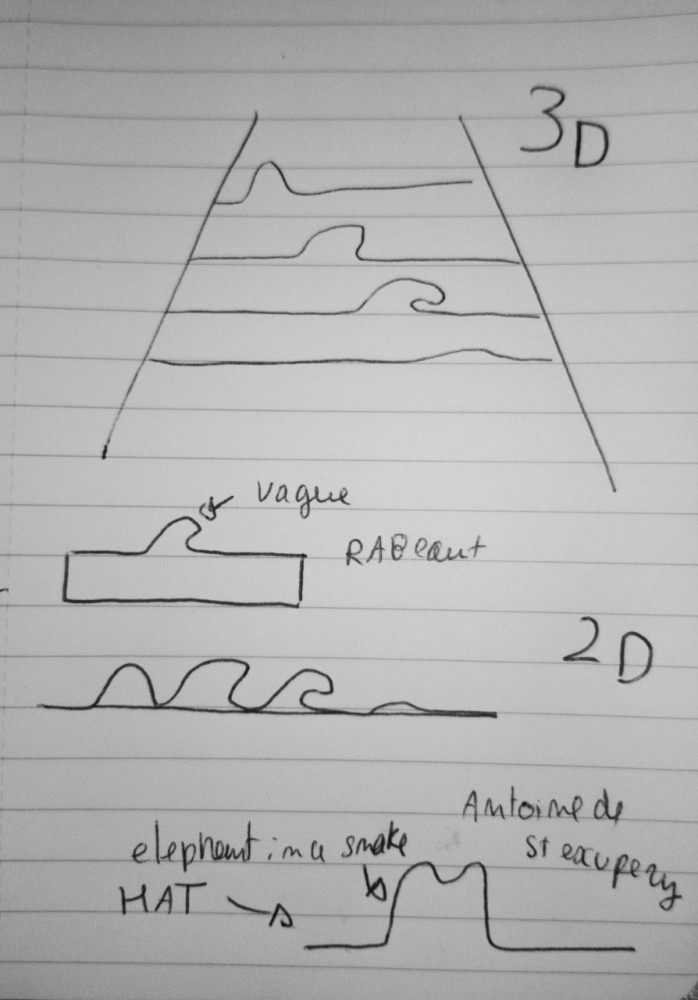 3D
vague
2D
Antoine de
St exupery
elephant in a snake
HAT